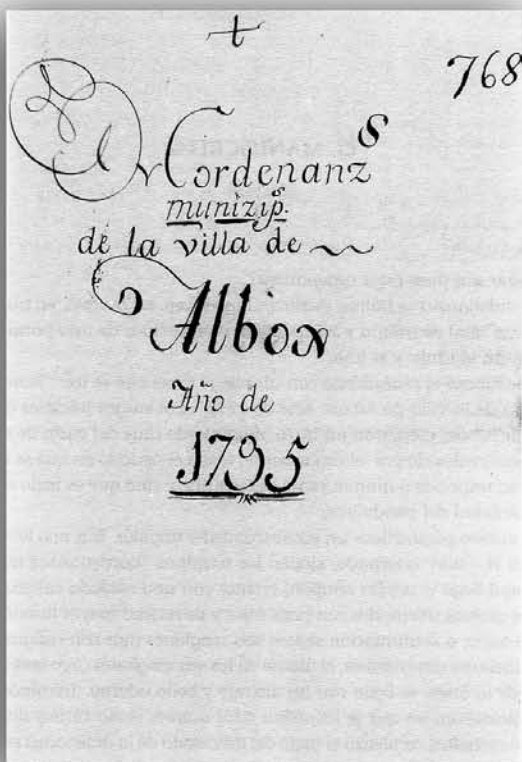 +
768
Ordenanz.s
munizip.s
de la villa de ~
Albox
Año de
1795